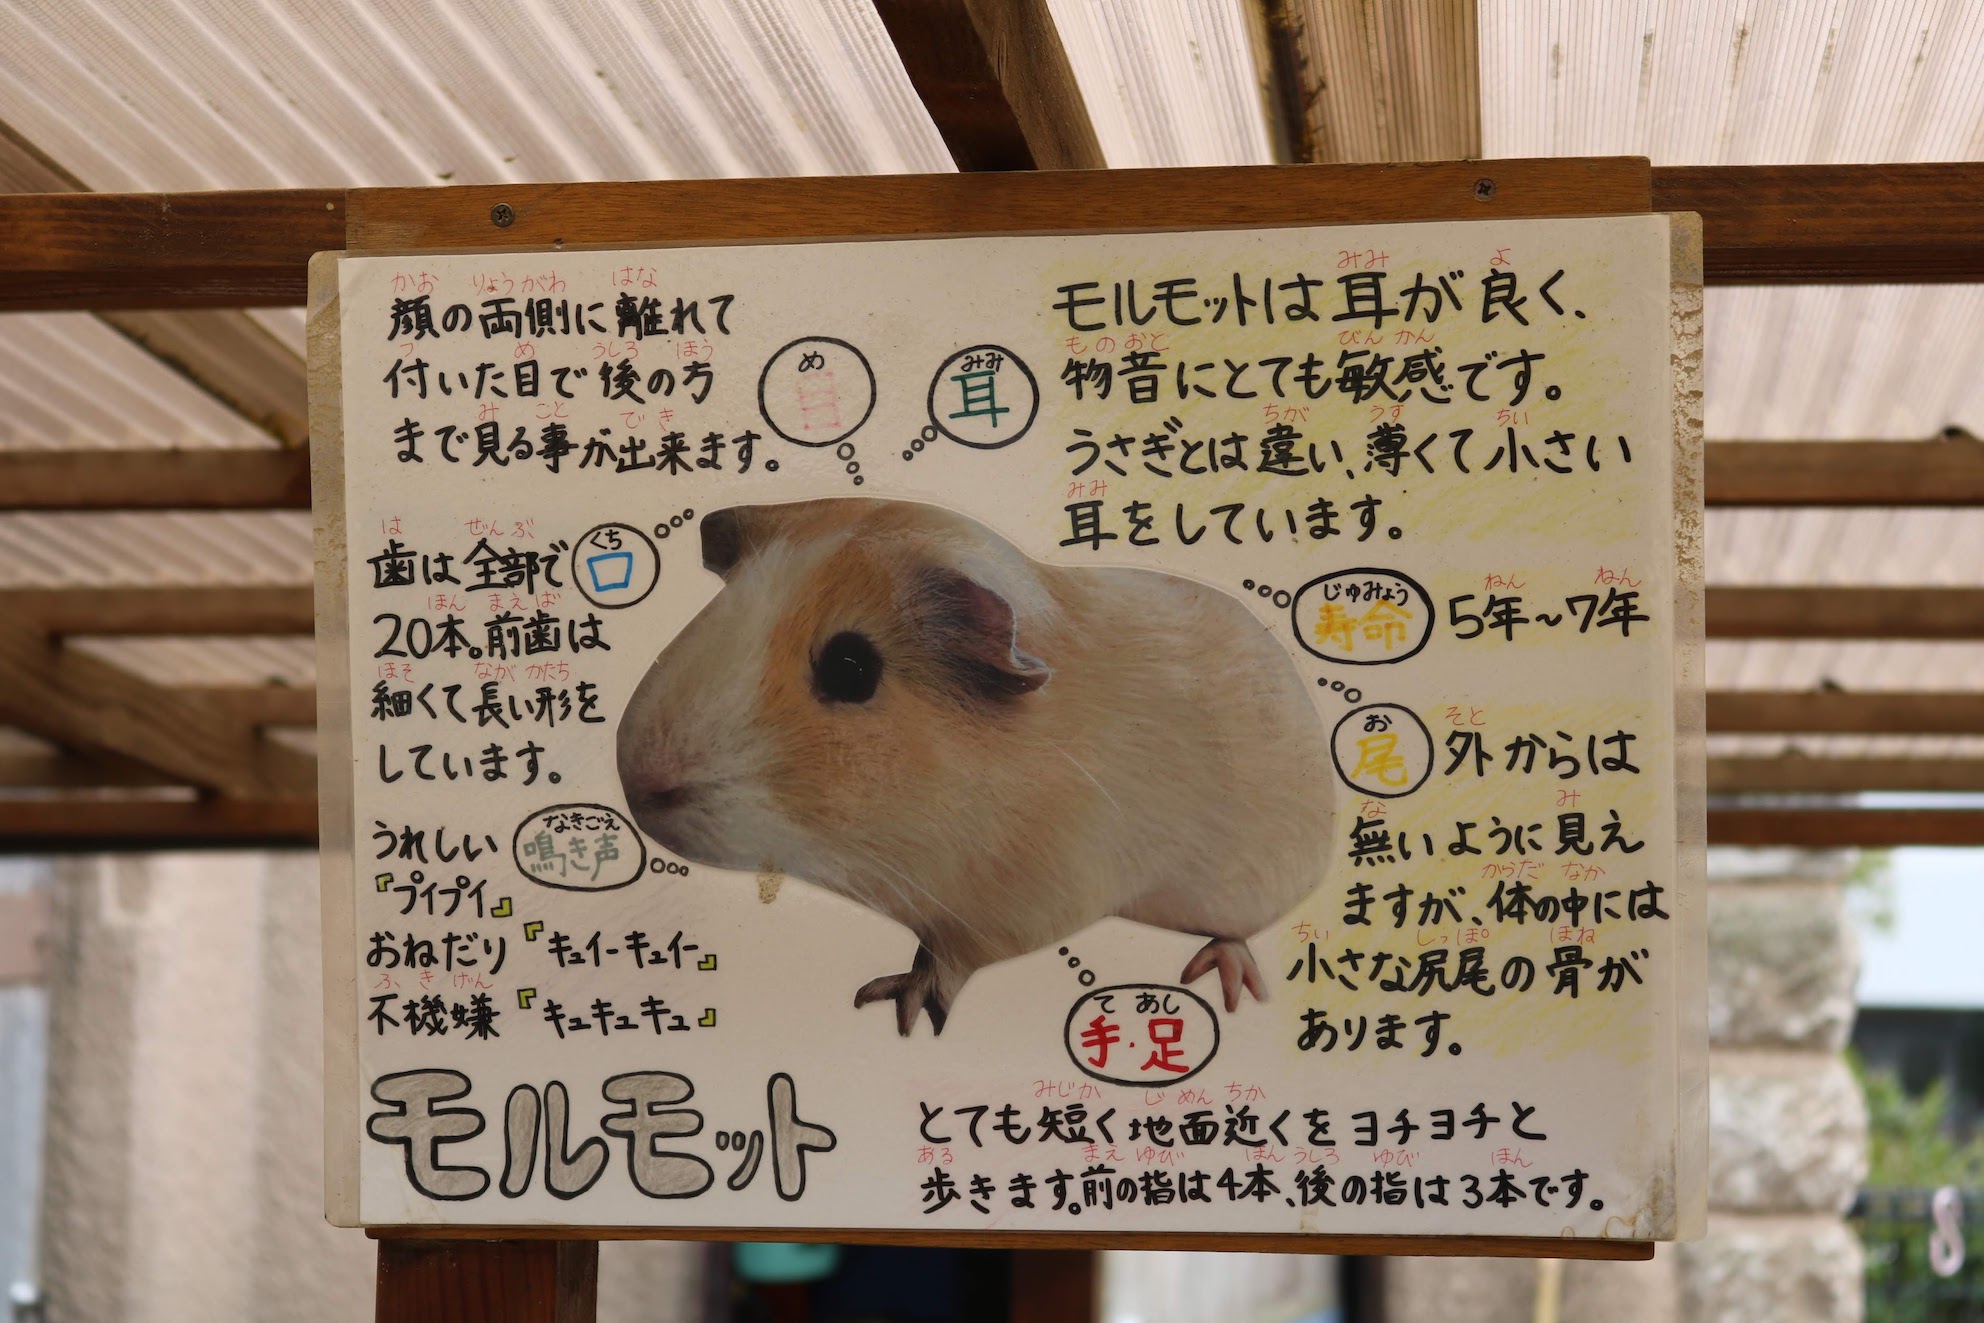 顔の両側に離れて
付いた目で後の方
まで見る事が出来ます。
かお りょうがわ はな
つ め うしろ ほう
み こと でき
め
目
みみ
耳
モルモットは耳が良く、
物音にとても敏感です。
うさぎとは違い、薄くて小さい
耳をしています。
みみ よ
ものおと びんかん
ちが うす ちい
みみ
くち
口
歯は全部で
20本。前歯は
細くて長い形を
しています。
は ぜんぶ
ほん まえば
ほそ なが かたち
じゅみょう
寿命
5年〜7年
ねん ねん
お
尾
外からは
無いように見え
ますが、体の中には
小さな尻尾の骨が
あります。
そと
な み
からだ なか
ちい しっぽ ほね
なきごえ
鳴き声
うれしい
『プイプイ』
おねだり『キュイーキュイー』
不機嫌『キュキュキュ』
ふきげん
て あし
手・足
とても短く地面近くをヨチヨチと
歩きます。前の指は4本、後の指は3本です。
みじか じめん ちか
ある まえ ゆび ほん うしろ ゆび ほん
モルモット